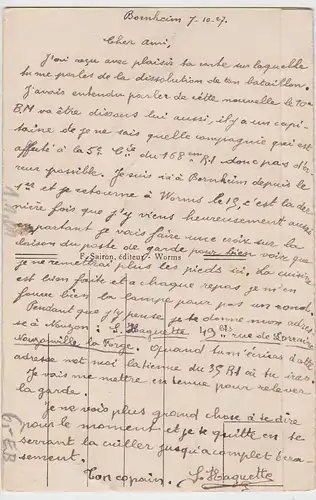 Bornheim 7-10-27.
Cher Ami,
J'ai reçu avec plaisir ta carte sur laquelle
tu me parles de la dissolution de ton bataillon.
J'avais entendu parler de cette nouvelle le 10e
B.M va être dissous lui aussi, il y a un capi-
taine de je ne sais quelle compagnie qui est
affecté à la 5e Cie du 168eme RI donc pas d'er
reur possible. Je suis ici à Bornheim depuis le
1er et je retourne à Worms le 15, c'est la der
nière fois que j'y viens heureusement aussi
en partant je vais faire une croix sur la
liaison du poste de garde pour bien voir que
F. Sairon, éditeur - Worms
je ne remettrai plus les pieds ici. La cuisine
est bien faite et a chaque repas je m'en
fourre bien la lampe pour pas un rond.
Pendant que j'y pense je te donne mon adres
se à Nouzon : L. Haguette 49 bis rue de Lorraine
Nouzonville la Forge. Quand tu m'écriras d'ette
adresse moi la tienne du 35 RI où tu iras.
Je vais me mettre en tenue pour relever
la garde.
Je ne vois plus grand chose à te dire
pour le moment et je te quitte en te
serrant la cuiller jusqu'a complet écra
sement.
Ton copain. L. Haguette